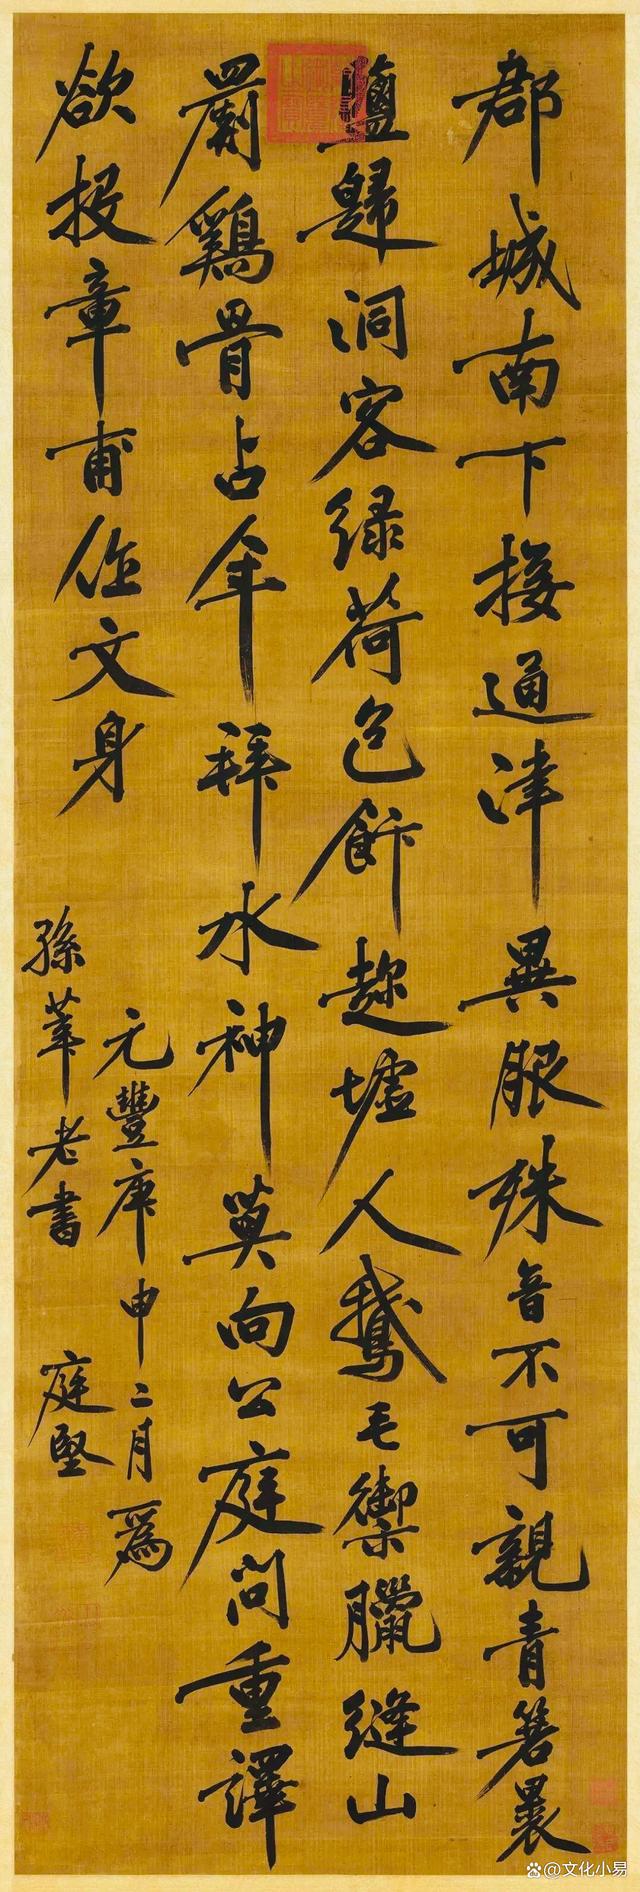 郡城南下接通津異服殊音不可親青箬裹
鹽歸洞客緑荷包飯趂墟人鵞毛禦臘縫山
罽雞骨占年拜水神莫向公庭問重譯
欲投章甫作文身
元豐庚申二月為
孫莘老書
庭堅
@文化小易